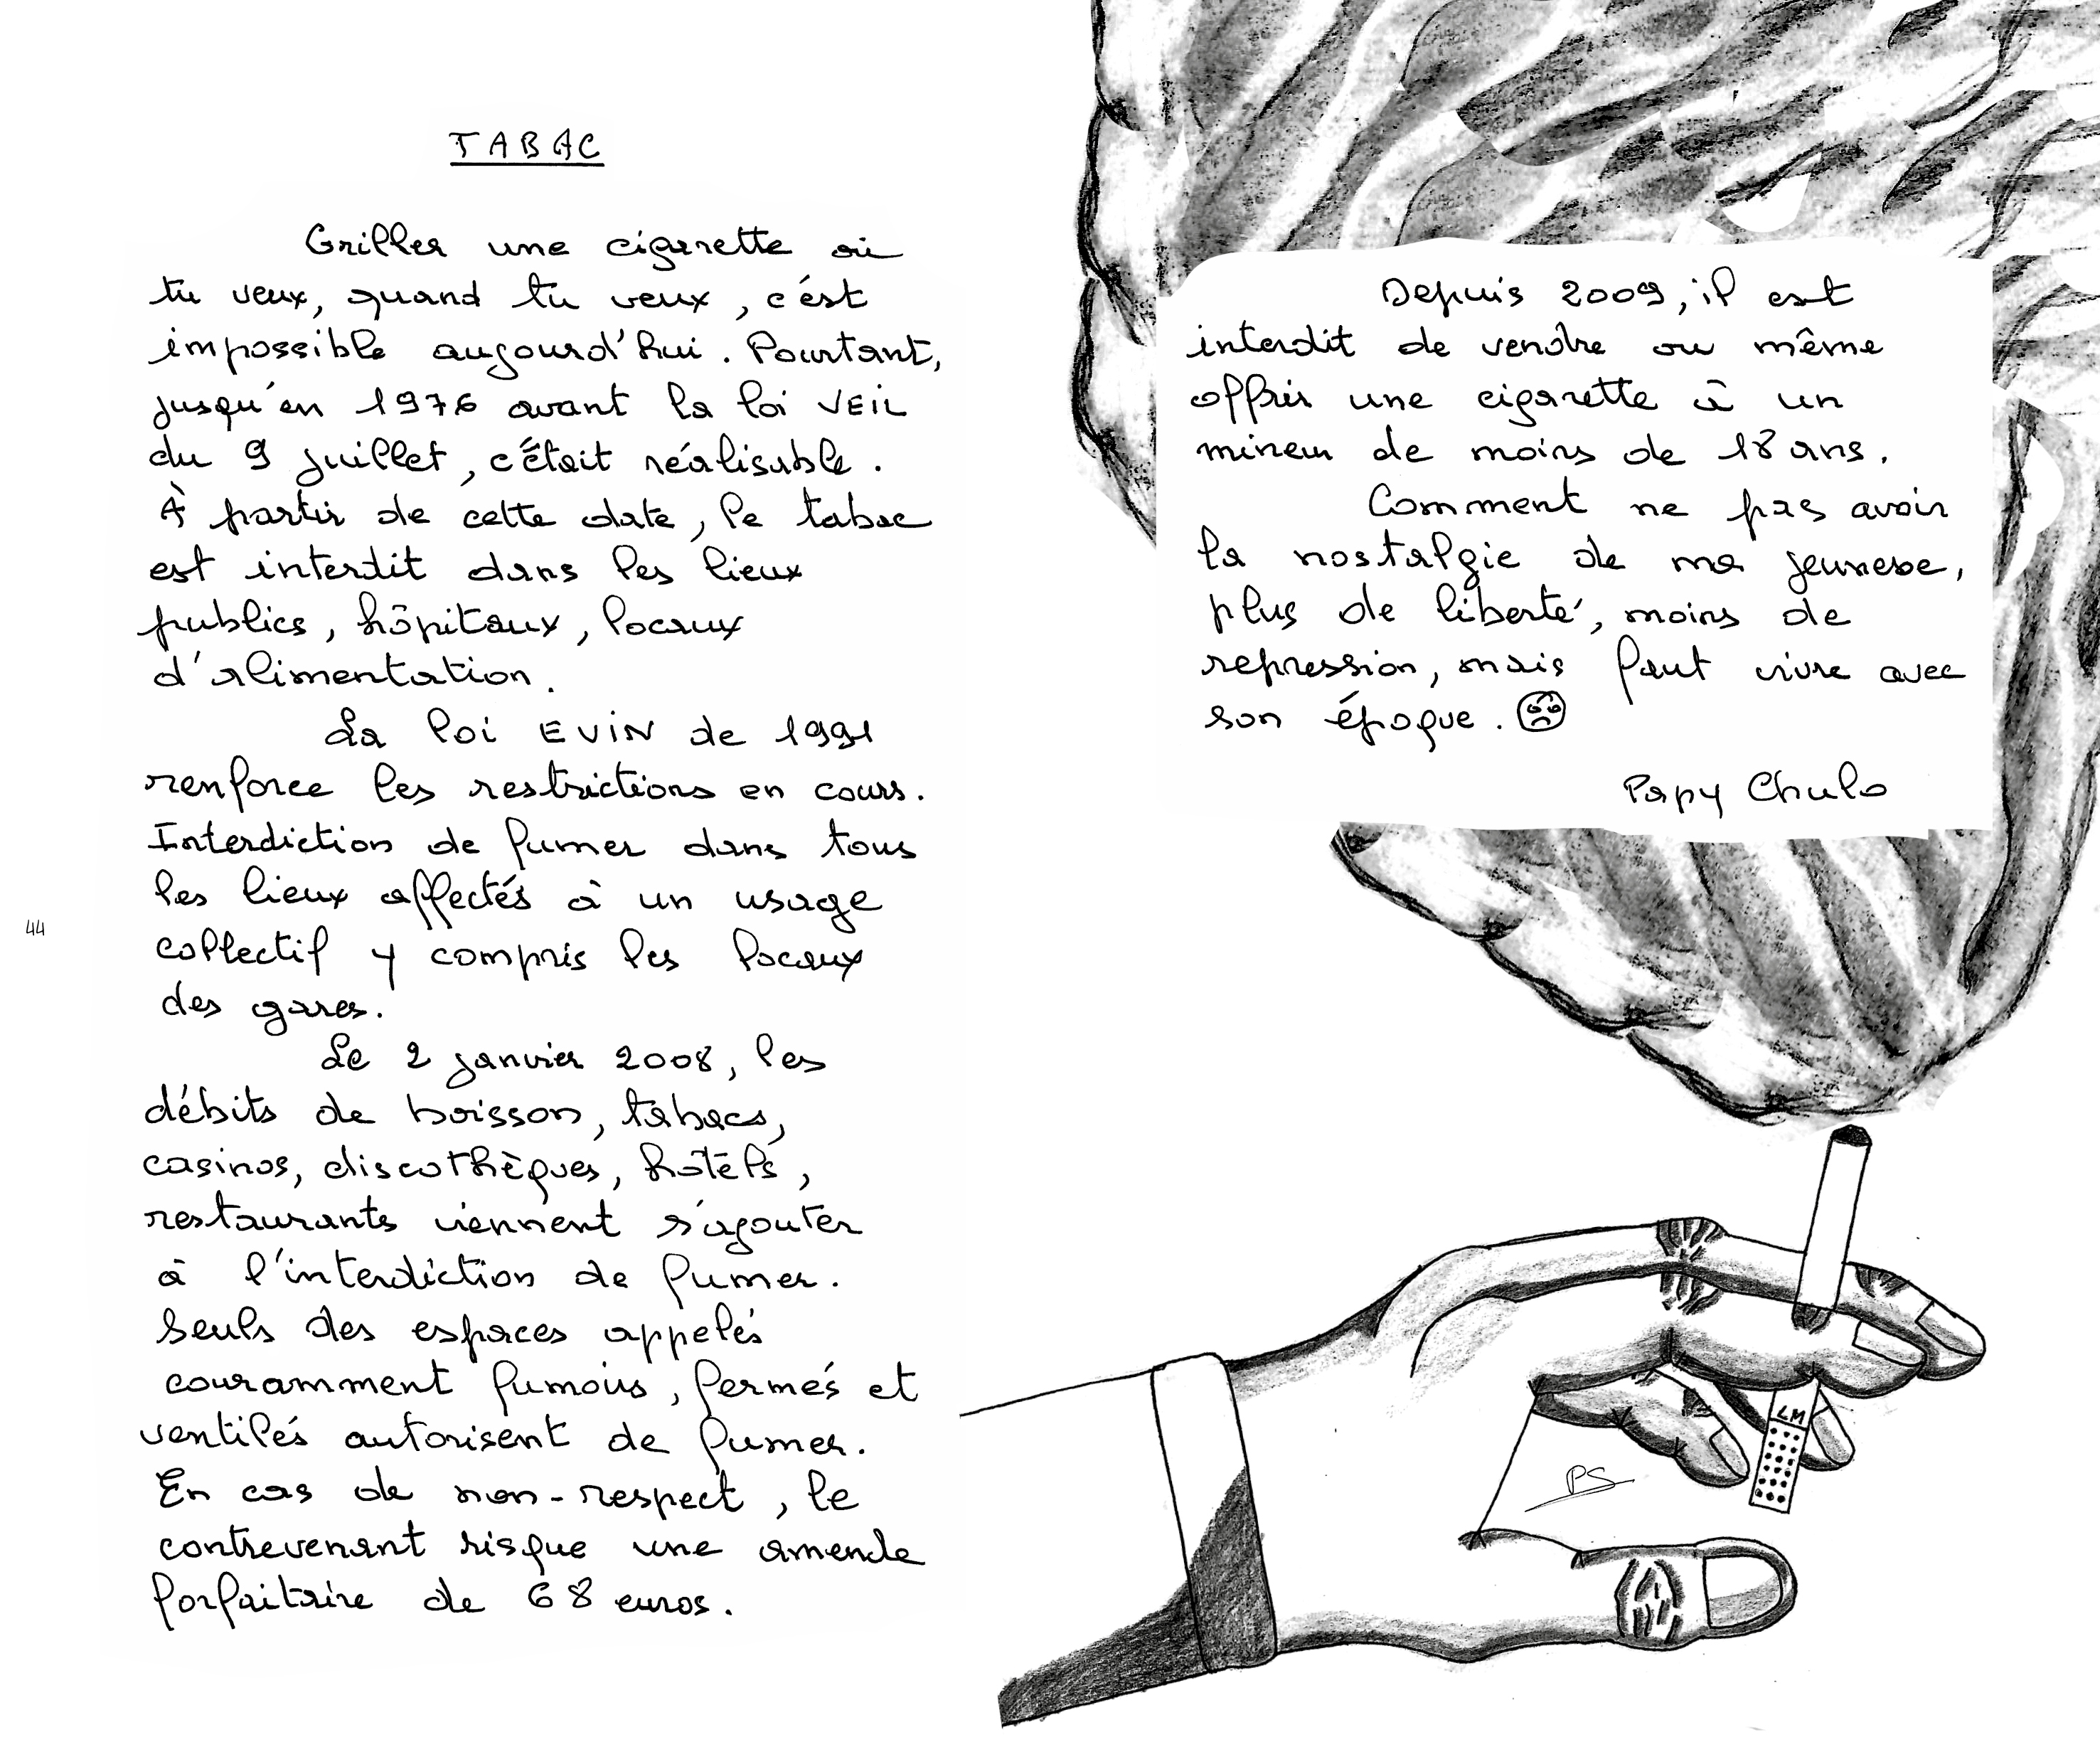 TABAC
Griller une cigarette où
tu veux, quand tu veux, c'est
impossible aujourd'hui. Pourtant,
jusqu'en 1976 avant la loi VEIL
du 9 juillet, c'était réalisable.
À partir de cette date, le tabac
est interdit dans les lieux
publics, hôpitaux, locaux
d'alimentation.
La loi EVIN de 1991
renforce les restrictions en cours.
Interdiction de fumer dans tous
les lieux affectés à un usage
collectif y compris les locaux
des gares.
Le 2 janvier 2008, les
débits de boisson, tabacs,
casinos, discothèques, hôtels,
restaurants viennent s'ajouter
à l'interdiction de fumer.
Seuls des espaces appelés
couramment fumoirs, fermés et
ventilés autorisent de fumer.
En cas de non-respect, le
contrevenant risque une amende
forfaitaire de 68 euros.
44
Depuis 2009, il est
interdit de vendre ou même
offrir une cigarette à un
mineur de moins de 18 ans.
Comment ne pas avoir
la nostalgie de ma jeunesse,
plus de liberté, moins de
repression, mais faut vivre avec
son époque.
Papy Chulo
LM
PS